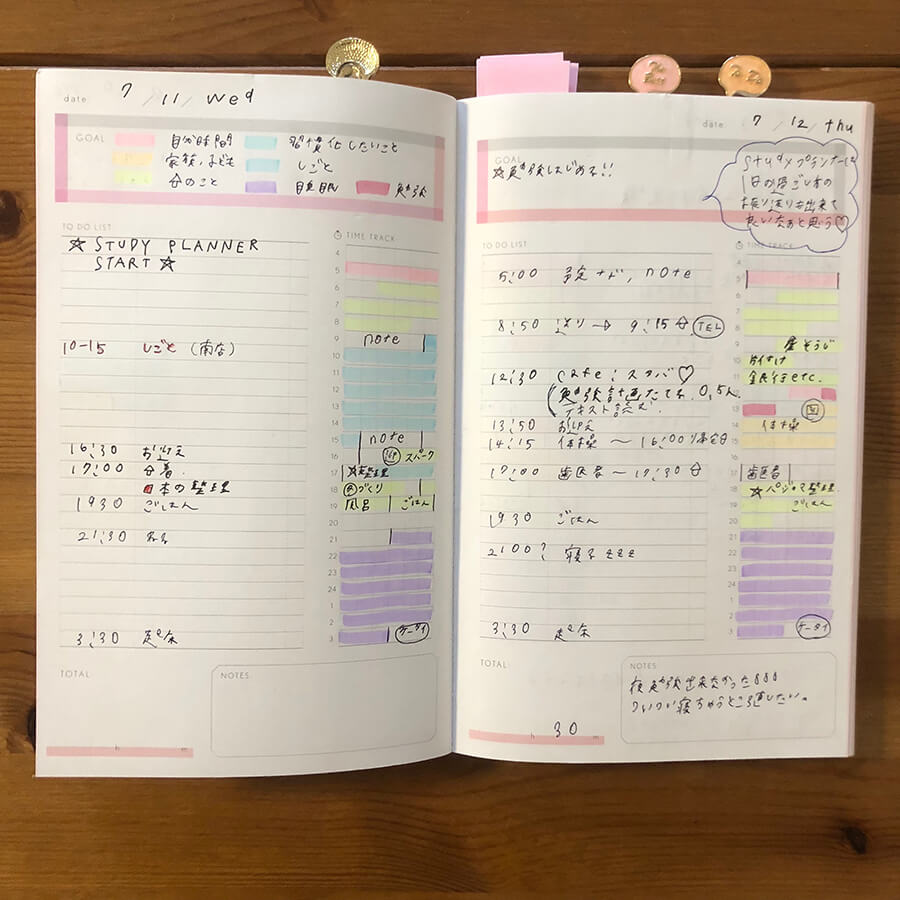 date: 7 / 11 / wed
GOAL 自分時間 習慣化したいこと
家族、子ども しごと
家のこと 睡眠 勉強
TO DO LIST
☆ STUDY PLANNER
START ☆
10-15 しごと (南店)
16:30 お迎え
17:00
本の整理
1930 ごはん
21:30 ねる
3:30 起床
TIME TRACK
4
5
6
7
8
9 note
10
11
12
13
14
15 note
16 スパーク
17 ☆整理
18 づくり
19 風呂 ごはん
20
21
22
23
24
1
2
3 ケータイ
TOTAL
h m
NOTES
date: 7 / 12 / thu
GOAL
☆勉強はじめる!!
Studyプランナーは
1日の過ごし方の
振り返りも出来て
良いなぁと思う♡
TO DO LIST
5:00 note
8:50 → 9:15 TEL
12:30 cafe:スタバ♡
(勉強計画たてる 0,5h
テキスト読む
13:50 お迎え
14:15 体操 ~ 16:00
17:00 歯医者 ~ 17:30
19.30 ごはん
21:00? 寝る zzz
3:30 起床
TIME TRACK
4
5
6
7
8
9 そうじ
10 片付け
11 銀行etc.
12
13
14 体操
15
16
17 歯医者
18 整理
19 ごはん
20
21
22
23
24
1
2
3 ケータイ
TOTAL
30
h m
NOTES
夜勉強出来なかった
ついつい寝ちゃうところ直したい。